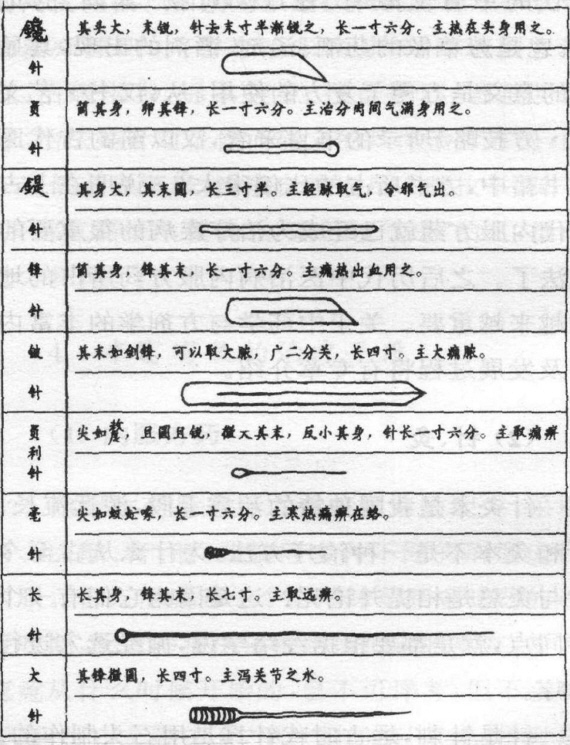 镵针
其头大、末锐，针去末寸半渐锐之，长一寸六分。主热在头身用之。
员针
筩其身，卵其锋，长一寸六分。主治分肉间气满身用之。
鍉针
其身大，其末圆，长三寸半。主经脉取气，令邪气出。
锋针
筩其身，锋其末，长一寸六分。主痈热出血用之。
铍针
其末如剑锋，可以取大脓，广二分关，长四寸。主大痈脓。
员利针
尖如氂，且圆且锐，微大其末，反小其身，针长一寸六分。主取痈痹
毫针
尖如蚊虻喙，长一寸六分。主寒热痛痹在络。
长针
长其身，锋其末，长七寸。主取远痹。
大针
其锋微圆，长四寸。主泻关节之水。